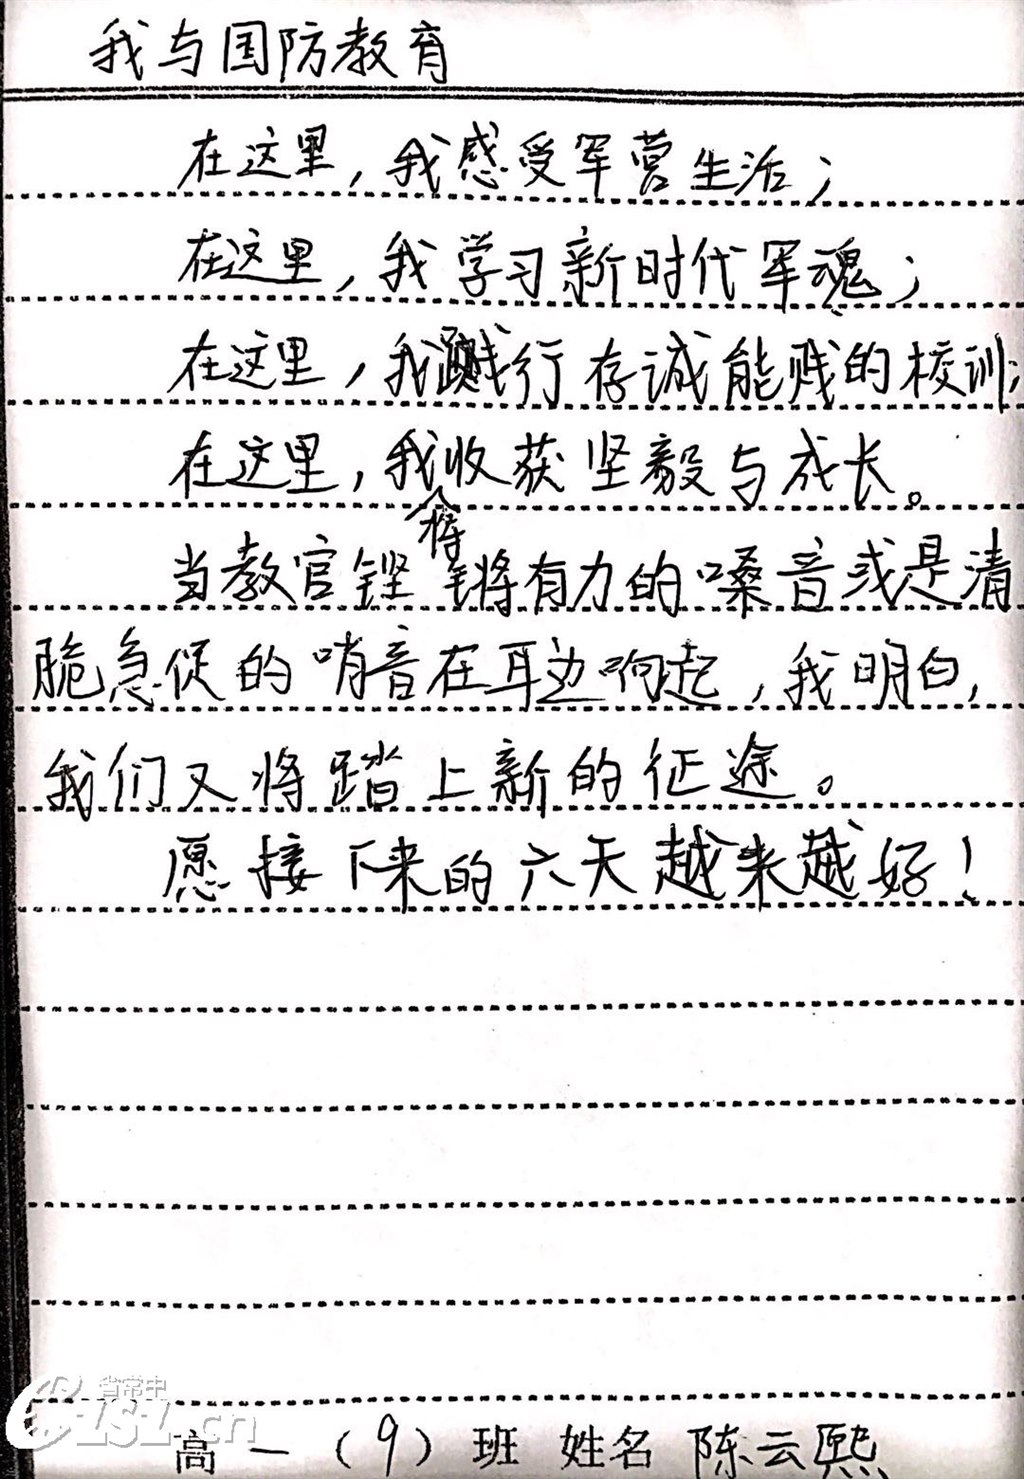 我与国防教育
在这里，我感受军营生活；
在这里，我学习新时代军魂；
在这里，我践行存诚能贱的校训；
在这里，我收获坚毅与成长。
将
当教官铿锵有力的嗓音或是清
脆急促的哨音在耳边响起，我明白，
我们又将踏上新的征途。
愿接下来的六天越来越好！
省常中
CZSZ.cn
高一（9）班 姓名 陈云熙